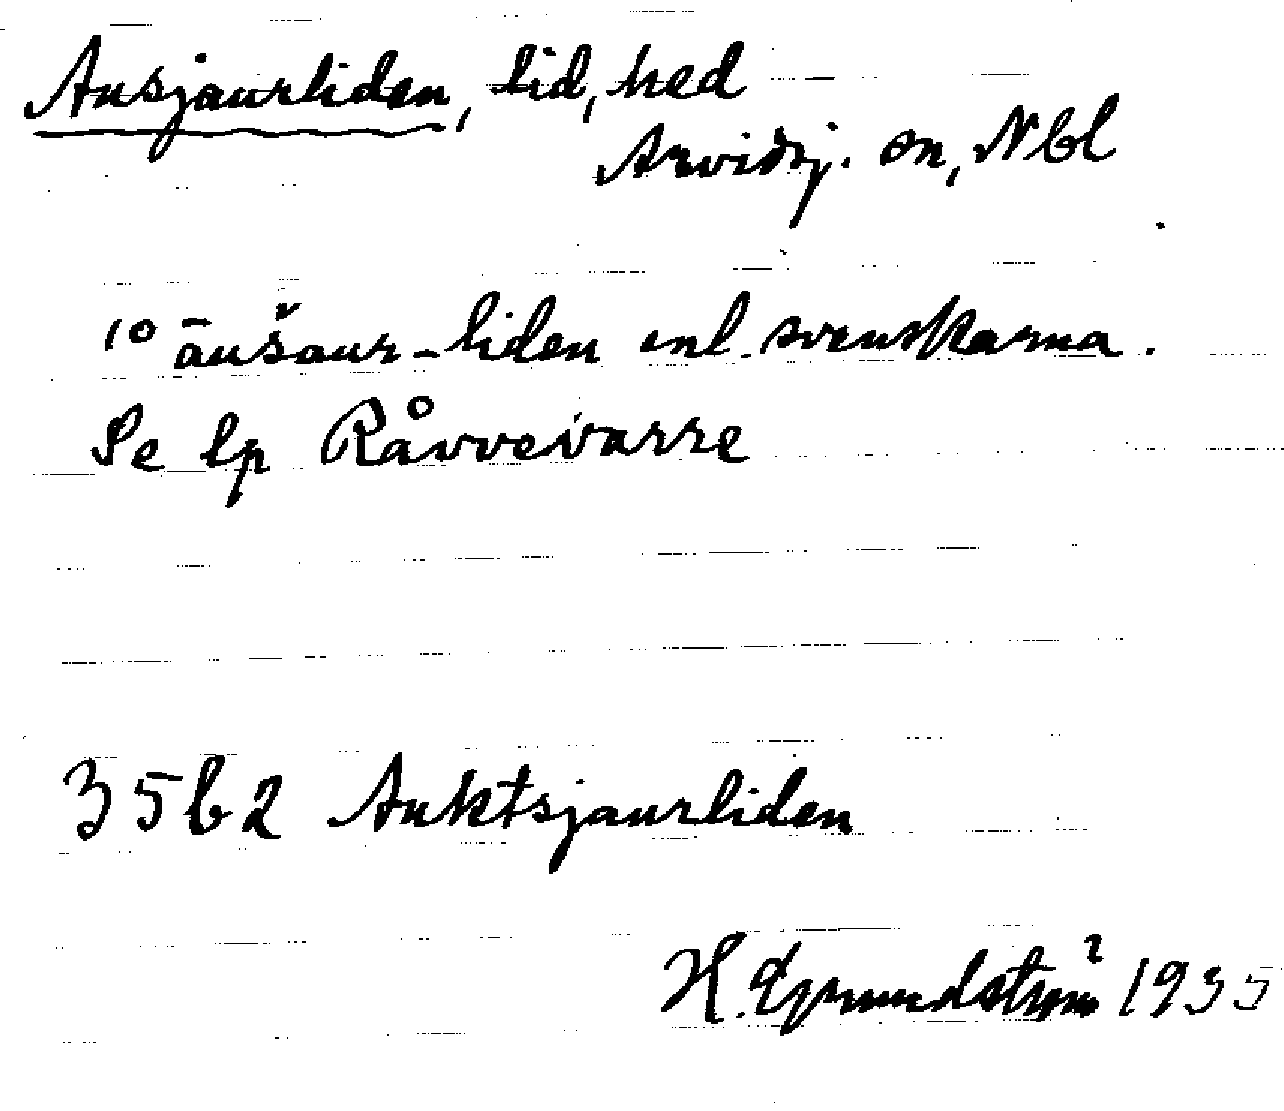 Ausjaurliden, lid, hed
Arvidsj. sn, Nbl
1º āušaur-liden enl. svenskarna.
Se lp Råvvevarre
35b2 Auktsjaurliden
H. Grundström 1935